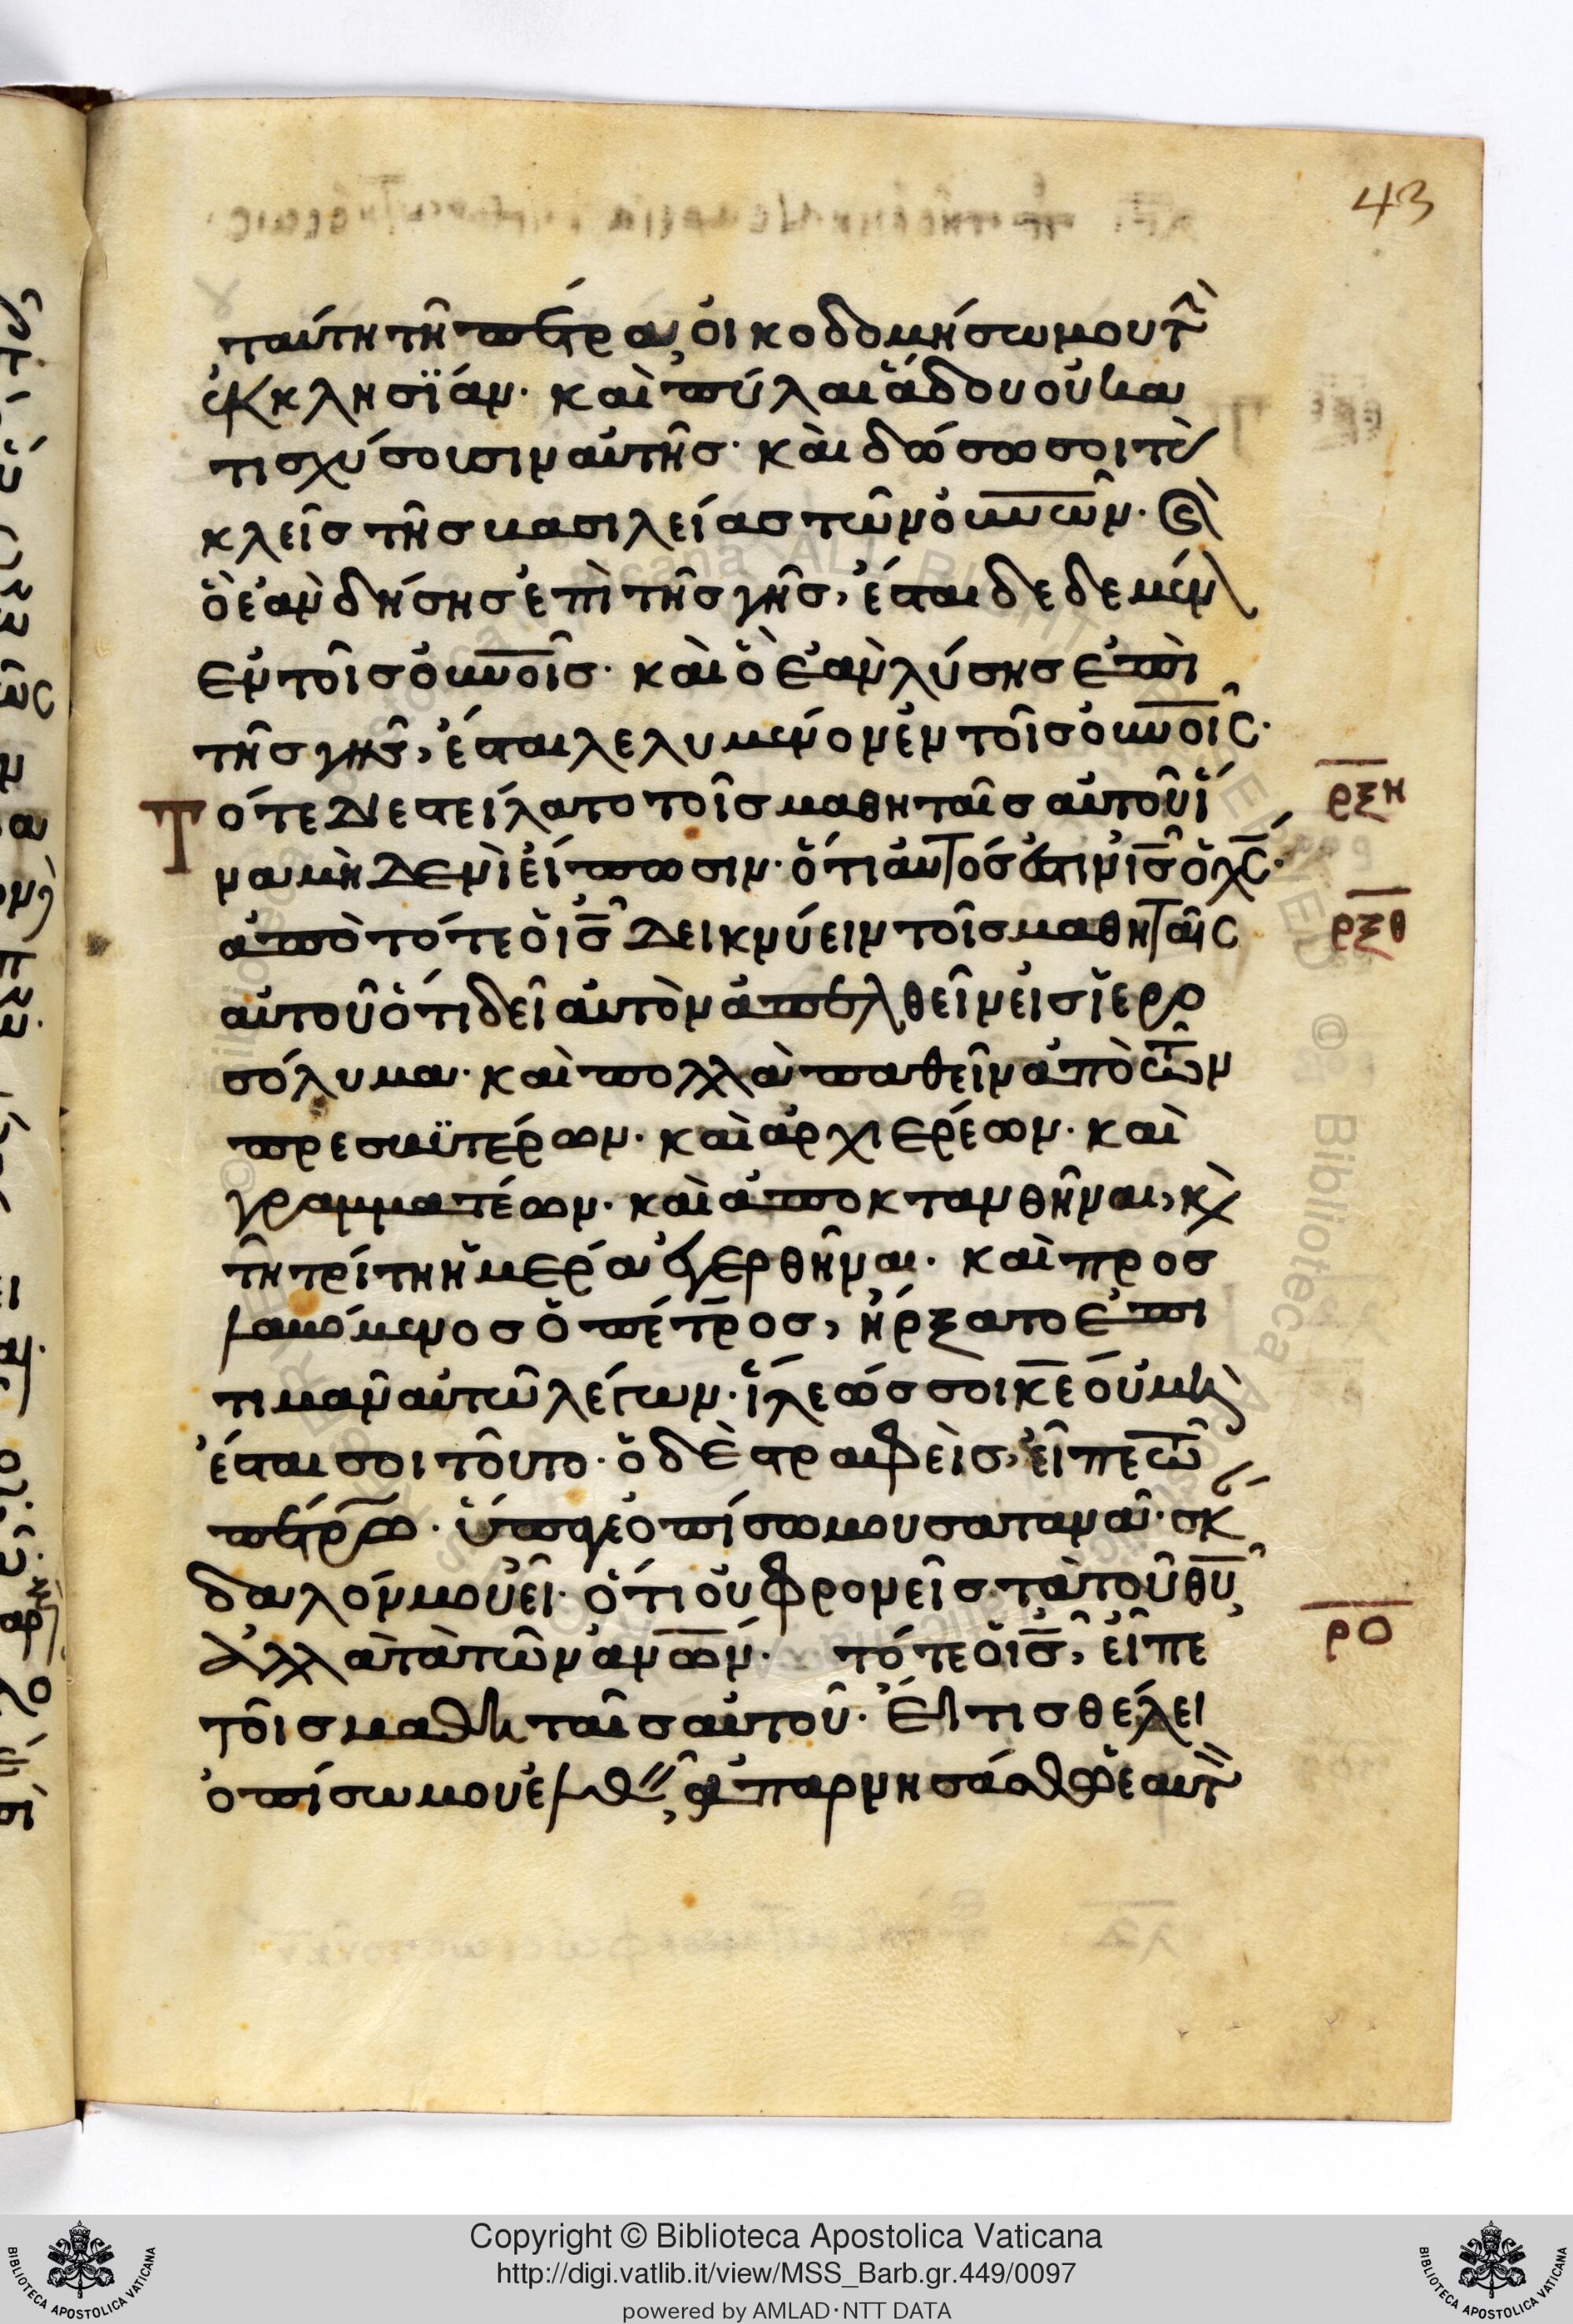 43
ταύτη τῆ πέτρα, οἰκοδομήσω μου τὴ
ἐκκλησΐαν· καὶ πύλαι ἅδου οὐ κα
τισχύσουσιν αὐτῆσ· καὶ δώσω σοι τὰ
κλεῖσ τῆσ βασιλείασ τῶν οὐνῶν· καὶ
ὃ ἐὰν δήσησ ἐπὶ τῆσ γῆσ, ἔσται δεδεμέν
ἐν τοῖσ οὐνοῖσ· καὶ ὃ ἐὰν λύσησ ἐπὶ
τῆσ γῆσ, ἔσται λελυμένον ἐν τοῖσ οὐνοῖσ·
Τότε διεστείλατο τοῖσ μαθηταῖσ αὐτοῦ ἵ
ρξη
να μηδενὶ εἴπωσιν· ὅτι αὐτόσ ἐστιν ἰσ ὁ χσ·
ἀπὸ τότε ὁ ἰσ δεικνύειν τοῖσ μαθηταῖσ
ρξθ
αὐτοῦ ὅτι δεῖ αὐτὸν ἀπελθεῖν εἰσ ἱερο
σόλυμα· καὶ πολλὰ παθεῖν ἀπὸ τῶν
πρεσβϋτέρων· καὶ ἀρχιερέων· καὶ
γραμματέων· καὶ ἀποκτανθῆναι, κὶ
τῆ τρίτη ἡμέρα ἐγερθῆναι· καὶ προσ
λαβόμενοσ ὁ πέτροσ, ἤρξατο ἐπι
τιμᾶν αὐτῶ λέγων· ἵλεώσ σοι κε οὐ μὴ
ἔσται σοι τοῦτο· ὁ δὲ στραφεὶσ, εἶπε τῶ
πέτρω· ὕπαγε ὀπίσω μου σατανᾶ· σκά
δαλόν μου εἶ· ὅτι οὐ φρονεῖσ τὰ τοῦ θυ
ἀλλὰ τὰ τῶν ἀνων· τότε ὁ ισ, εἶπε
ρο
τοῖσ μαθηταῖσ αὐτοῦ· Εἴ τισ θέλει
ὀπίσω μου ἐλθεῖν, ἀπαρνησάσθω ἑαυτὸ
Copyright © Biblioteca Apostolica Vaticana
http://digi.vatlib.it/view/MSS_Barb.gr.449/0097
powered by AMLAD·NTT DATA
BIBLIOTECA APOSTOLICA VATICANA
BIBLIOTECA APOSTOLICA VATICANA